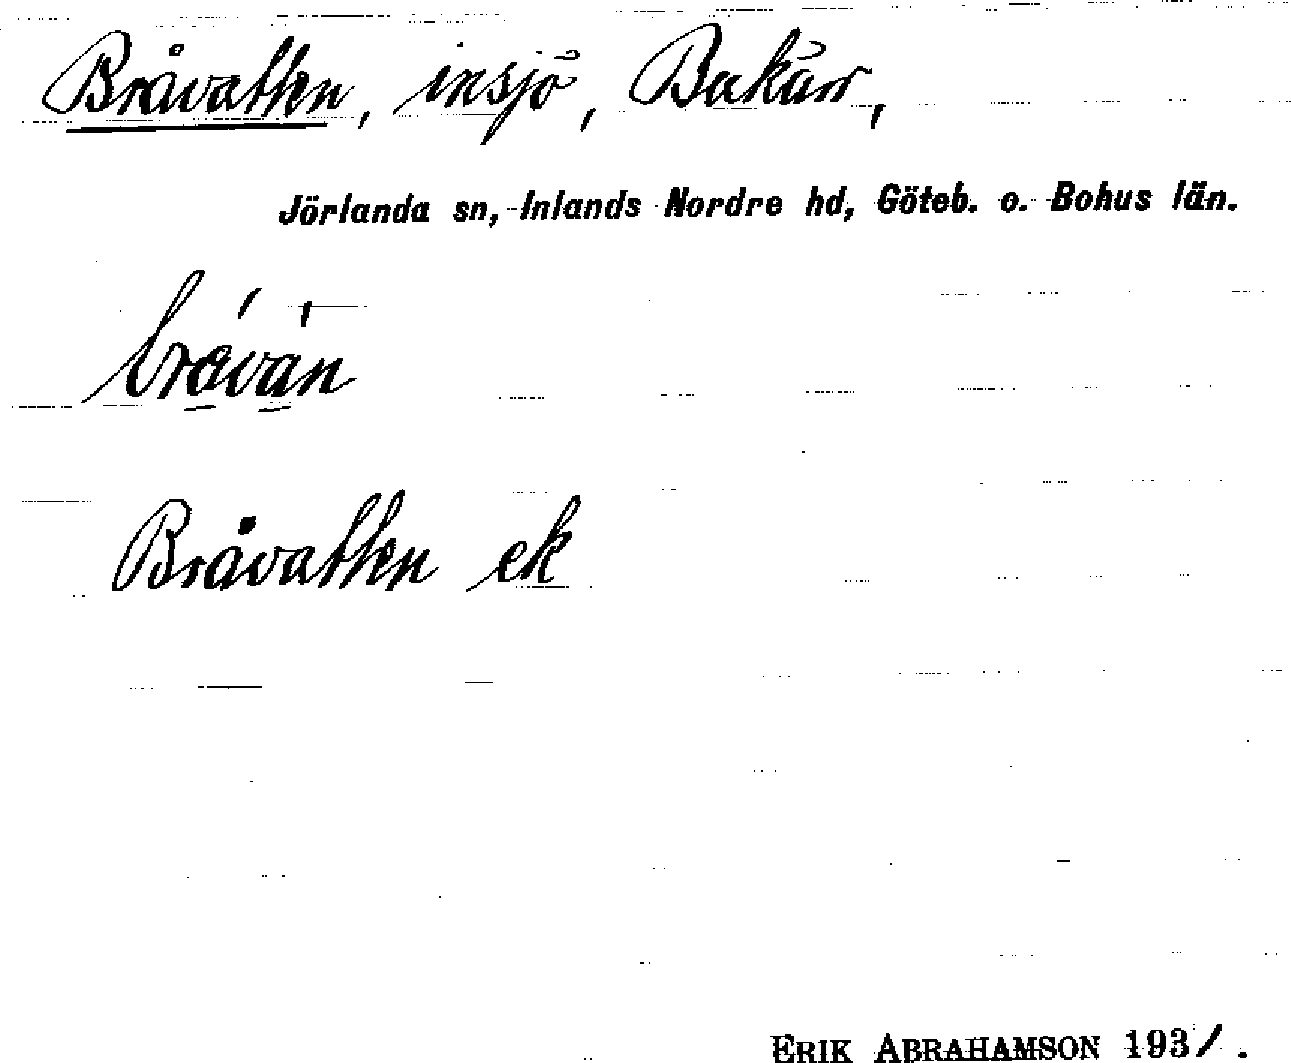 Bråvatten, insjö, Bakärr,
Jörlanda sn, Inlands Nordre hd, Göteb. o. Bohus län.
Bråvatten ek
ERIK ABRAHAMSON 1931.